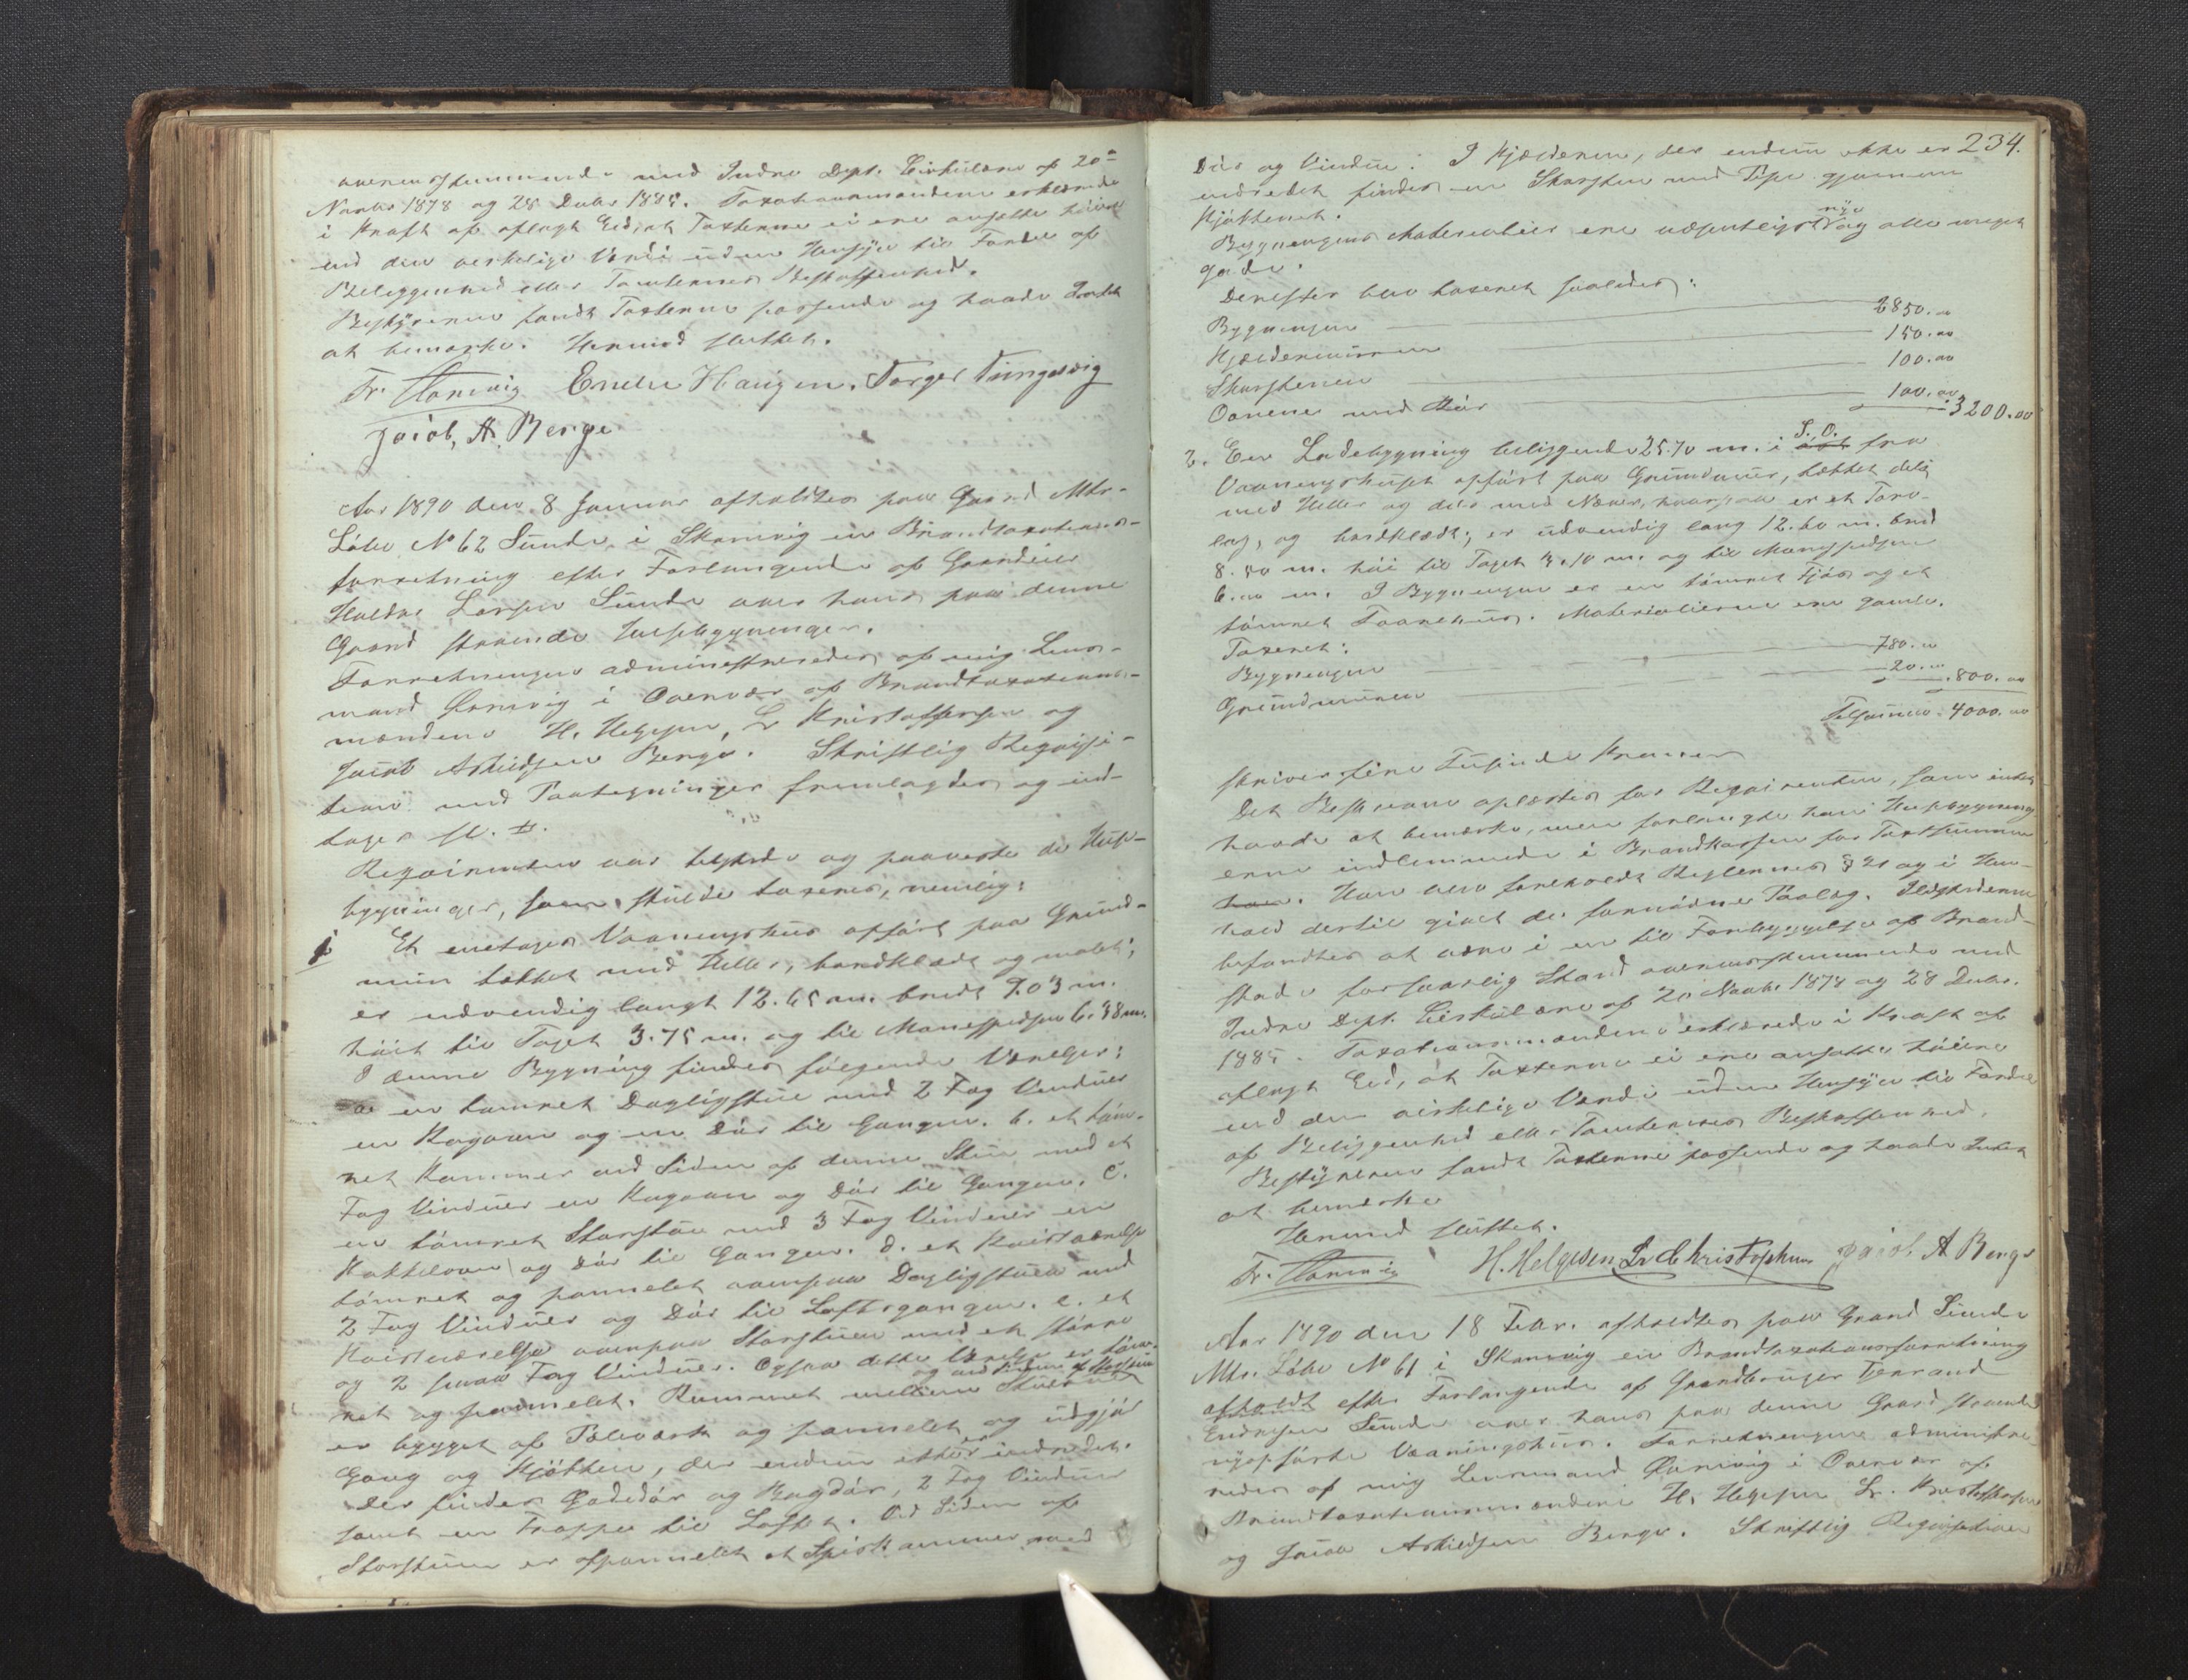 overensstemmende med Indre Dept. Cirkulære af 20de
Novbr 1878 og 28 Decbr 1885. Taxationsmændene erklærede
i Kraft af aflagt Eed, at Taxterne ei ere ansatte høiere
end den virkelige Værdi uden Hensyn til Fordel af
Beliggenhed eller Tomternes Beskaffenhed.
Bestyreren fandt Taxterne passende og havde Intet
at bemærke. Hermed sluttet.
Fr. Endre Haugen. Torger Tungesvig
Jacob, A. Berge
Aar 1890 den 8 Januar afholdtes paa Gaard Mtr-
Løbe No 62 Sunde i Skonevig en Brandtaxations-
forretning efter Forlangende af Gaardeier
Haldor Larsen Sunde over hans paa denne
Gaard staaende Husbygninger.
Forretningen administreredes af mig Lens-
mand i Overvær af Brandtaxations-
mændene H. Helgesen, Lr Kristoffersen og
Jacob Askildsen Berge. Skriftlig Reqvisi-
tion med Paategninger fremlagdes og ind-
tages sl. #.
Reqvirenten var tilstede og paaviste de Hus-
bygninger, som skulde taxeres, nemlig:
1 Et enetages Vaaningshus opført paa Grund-
mur tækket med Heller, bordklædt og malet;
er udvendig langt 12.65 m. bredt 7.03 m.
høit til Taget 3.75 m. og til Mønespidsen 6.38 m.
I denne Bygning findes følgende Værelser:
a. en tømret Dagligstue med 2 Fag Vinduer
en Kogovn og en Dør til Gangen. b. et tøm-
ret Kammer ved Siden af denne Stue med et
Fag Vinduer en Kogovn og Dør til Gangen. C.
en tømret Storstue med 3 Fag Vinduer en
Kakkelovn og Dør til Gangen. d. et Kvistværelse
tømret og pannelet ovenpaa Dagligstuen med
2 Fag Vinduer og Dør til Loftsgangen. e. et
Kvistværelse ovenpaa Storstuen med et større
og 2 smaa Fag Vinduer. Ogsaa dette Værelse er tøm-
ret og pannelet. Rummet mellem Stuerne og ved Siden af
er bygget af Boleværk og pannelet og udgjør
Gang og Kjøkken, der endnu ikke er indredet.
Der findes Gadedør og Bagdør, 2 Fag Vinduer
samt en Trappe til Loftet. Ved Siden af
Storstuen er afpannelet et Spiskammer med
234.
Dør og Vindu. I Kjælderen, der endnu ikke er
indredet findes en Skorsten med Pipe gjennem
Kjøkkenet.
Bygningens Materialier ere væsentligst nye og alle meget
gode.
Derefter blev taxeret saaledes:
Bygningen 2850.00
Kjældermuren 150.00
Skorstenen 100.00
Ovnene med Rør 100.00 3200.00
2. En Ladebygning beliggende 25.70 m. i S.O. fra
Vaaningshuset opført paa Grundmur, tækket dels
med Heller og dels med Næver, hvorpaa er et Torv-
lag, og bordklædt; er udvendig lang 12.60 m. bred
8.50 m. høi til Taget 3.10 m. og til Mønespidsen
6.00 m. I Bygningen er en tømret Fjøs og et
tømret Faarehus. Materialierne ere gamle.
Taxeret:
Bygningen 780.00
Grundmuren 20.00 800.00
Tilsammen 4000.00
skriver fire Tusinde Kroner
Det Beskrevne oplæstes for Reqvirenten, som intet
havde at bemærke, men forlangte hans Husbygning
erne indlemmede i Brandkassen for Taxtsummen
. Han blev foreholdt Reglernes § 21 og i Hen-
hold dertil givet de fornødne Paalæg. Ildstederne
befandtes at være i en til Forebyggelse af Brand-
skade forsvarlig Stand overensstemmende med
Indre Dept. Cirkulære af 20 Novbr. 1878 og 28 Decbr.
1885. Taxationsmændene erklærede i Kraft af
aflagt Eed, at Taxterne ei ere ansatte høiere
end den virkelige Værdi uden Hensyn til Fordel
af Beliggenhed eller Tomternes Beskaffenhed.
Bestyreren fandt Taxterne passende og havde Intet
at bemærke
Hermed sluttet.
Fr. H. Helgesen Lr Christophersen Jacob A Berge
Aar 1890 den 18 Febr. afholdtes paa Gaard Sunde
Mtr. Løbe No 61 i Skonevig en Brandtaxationsforretning
afholdt efter Forlangende af Gaardbruger Tjerand
Endresen Sunde over hans paa denne Gaard staaende
nyopførte Vaaningshus. Forretningen administre-
redes af mig Lensmand i Overvær af
Brandtaxationsmændene H. Helgesen Lr. Kristoffersen
og Jacob Askildsen Berge. Skriftlig Reqvisition